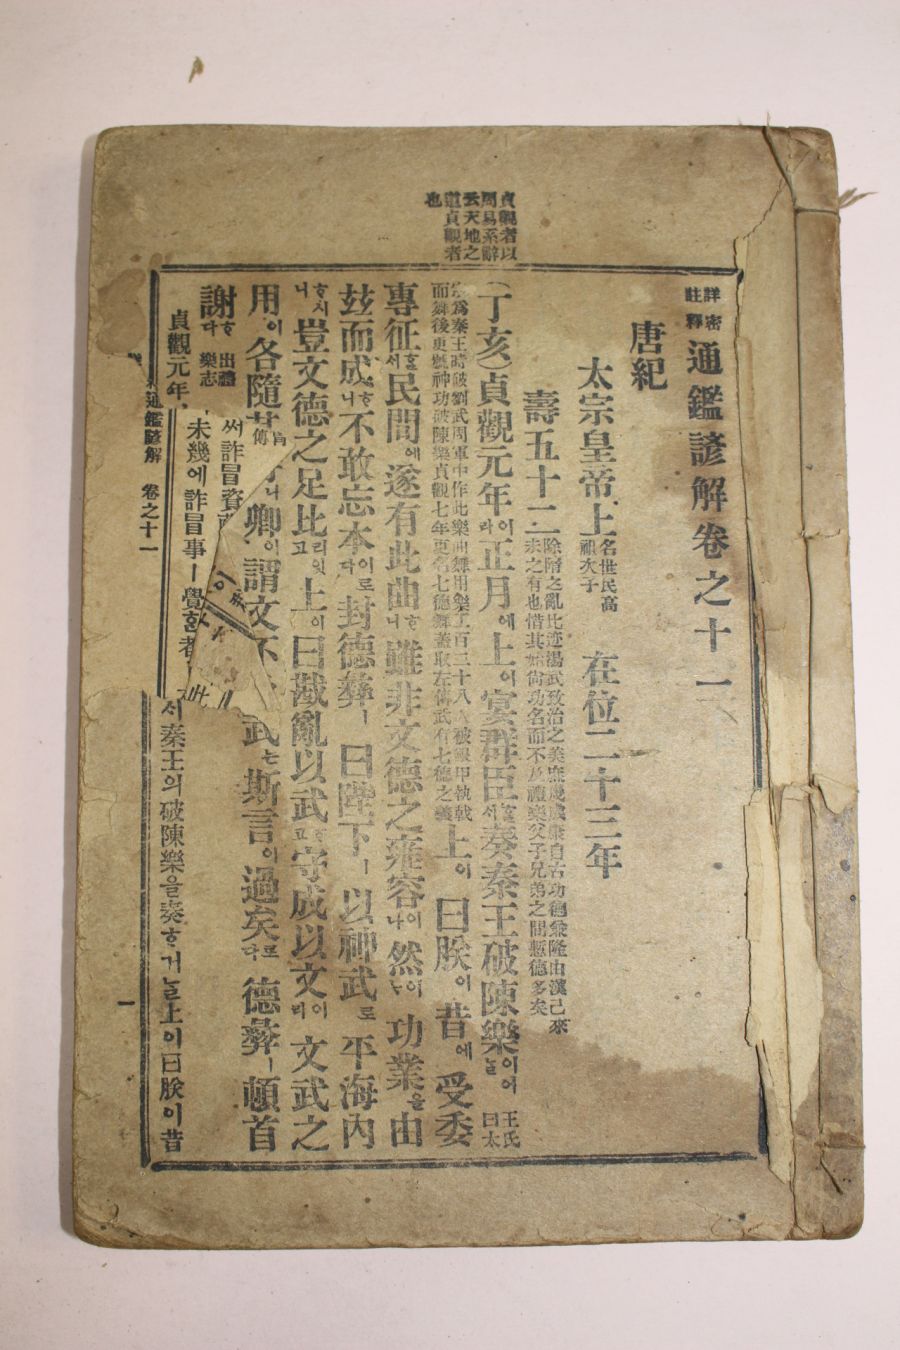 貞觀者以
周易系辭
云天地之
道貞觀者
也
詳密
註釋
通鑑諺解卷之十一
唐紀
太宗皇帝上
名世民高
祖次子
在位二十三年
壽五十二
除隋之亂比迹湯武致治之美庶幾成康自古功德兼隆由漢已來
未之有也惜其
功名而不及禮樂父子兄弟之間慙德多矣
(丁亥)貞觀元年이라正月에上이宴群臣
奏秦王破陳樂이어늘
王氏
曰太
宗爲秦王時破劉武周軍中作此樂曲舞用樂工百二十八人被銀甲執戟
而舞後更號神功破陳樂貞觀七年更名七德舞蓋取左傳武有七德之義
上이曰朕이昔에受委
專征
民間에遂有此曲
雖非文德之雍容이나然이나功業을由
玆而成
不敢忘本이로다封德彛ㅣ曰陛下ㅣ以神武로平海內
豈文德之足比리잇고上이曰戡亂以武
守成以文이리
文武之
用이各隨其
時니卿이謂文不
武는斯言이過矣로다德彛ㅣ頓首
謝
出禮
樂志
貞觀元年
써詐冒資
未幾에詐冒事ㅣ覺
通鑑諺解 卷之十一
一
秦王의破陳樂을奏ᄒᆞ거ᄂᆞᆯ上이曰朕이昔